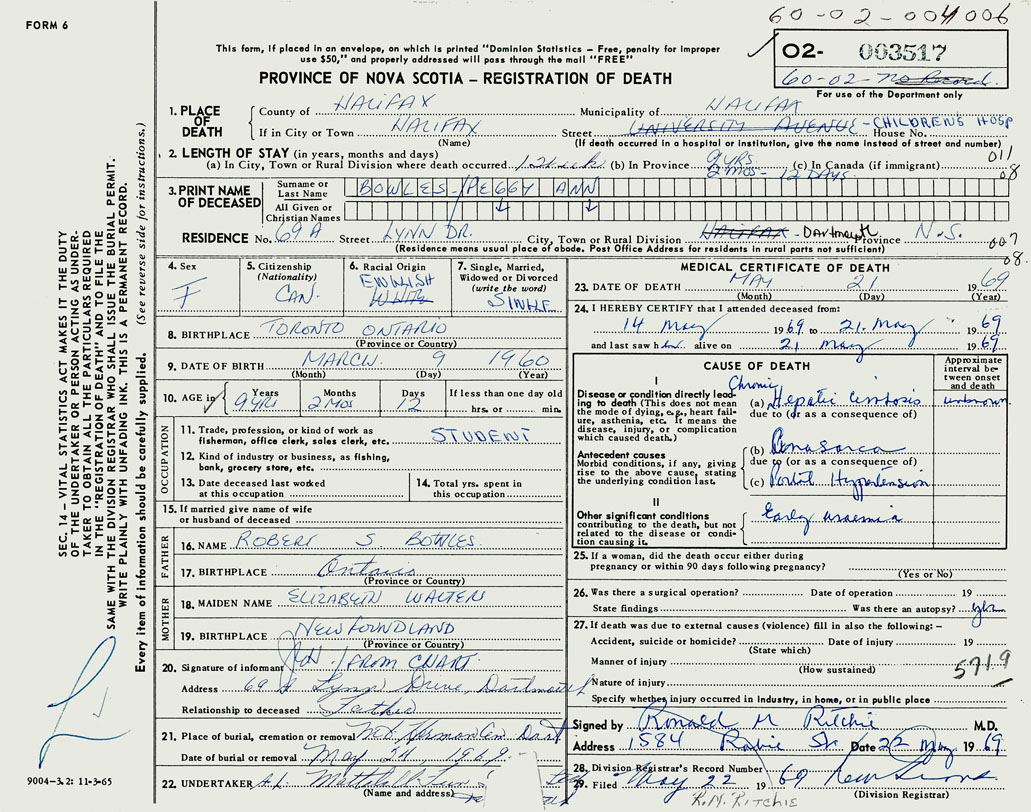 FORM 6
60-02-004006
This form, if placed in an envelope, on which is printed "Dominion Statistics – Free, penalty for improper
use $50," and properly addressed will pass through the mail "FREE"
PROVINCE OF NOVA SCOTIA – REGISTRATION OF DEATH
02- 003517
60-02- No Record.
For use of the Department only
1. PLACE OF DEATH
County of HALIFAX Municipality of HALIFAX
If in City or Town HALIFAX Street UNIVERSITY AVENUE - CHILDREN'S HOSP House No.
(Name) (If death occurred in a hospital or institution, give the name instead of street and number)
2. LENGTH OF STAY (in years, months and days) 011
(a) In City, Town or Rural Division where death occurred (b) In Province 9 YRS 2 MOS - 12 DAYS. (c) In Canada (if immigrant) 08
3. PRINT NAME OF DECEASED
Surname or Last Name BOWLES - PEGGY ANN
All Given or Christian Names
RESIDENCE No. 69 A Street LYNN DR. City, Town or Rural Division HALIFAX - Dartmouth Province N.S. 007
(Residence means usual place of abode. Post Office Address for residents in rural parts not sufficient) 08.
4. Sex F
5. Citizenship (Nationality) CAN.
6. Racial Origin ENGLISH WHITE
7. Single, Married, Widowed or Divorced (write the word) SINGLE
8. BIRTHPLACE TORONTO ONTARIO
(Province or Country)
9. DATE OF BIRTH MARCH 9 1960
(Month) (Day) (Year)
10. AGE in Years 9 YRS Months 2 MOS Days 12 If less than one day old hrs. or min.
OCCUPATION
11. Trade, profession, or kind of work as fisherman, office clerk, sales clerk, etc. STUDENT
12. Kind of industry or business, as fishing, bank, grocery store, etc.
13. Date deceased last worked at this occupation
14. Total yrs. spent in this occupation
15. If married give name of wife or husband of deceased
FATHER
16. NAME ROBERT S BOWLES.
17. BIRTHPLACE Ontario
(Province or Country)
MOTHER
18. MAIDEN NAME ELIZABETH WALTER
19. BIRTHPLACE NEWFOUNDLAND
(Province or Country)
20. Signature of informant FROM CHART.
Address 69 A Lynn Drive, Dartmouth
Relationship to deceased Father
21. Place of burial, cremation or removal Mt. Hermon Cem Dart
Date of burial or removal May 24 1969.
22. UNDERTAKER
(Name and address)
MEDICAL CERTIFICATE OF DEATH
23. DATE OF DEATH MAY 21 1969
(Month) (Day) (Year)
24. I HEREBY CERTIFY that I attended deceased from:
14 May 1969 to 21. May 1969
and last saw her alive on 21 May 1969
CAUSE OF DEATH
Approximate interval between onset and death
I
Disease or condition directly leading to death (This does not mean the mode of dying, e.g., heart failure, asthenia, etc. It means the disease, injury, or complication which caused death.)
Chronic
(a) Hepatic Cirrhosis unknown
due to (or as a consequence of)
Antecedent causes
Morbid conditions, if any, giving rise to the above cause, stating the underlying condition last.
(b) Anasarca
due to (or as a consequence of)
(c) Portal Hypertension
II
Other significant conditions contributing to the death, but not related to the disease or condition causing it.
Early uraemia
25. If a woman, did the death occur either during pregnancy or within 90 days following pregnancy?
(Yes or No)
26. Was there a surgical operation? Date of operation 19
State findings Was there an autopsy? yes
27. If death was due to external causes (violence) fill in also the following: –
Accident, suicide or homicide? Date of injury 19
(State which)
Manner of injury 571.9
(How sustained)
Nature of injury
Specify whether injury occurred in industry, in home, or in public place
Signed by Ronald M Ritchie M.D.
Address 1584 Robie St. Date 22 May 1969.
28. Division Registrar's Record Number
29. Filed May 22 1969
(Division Registrar)
R.M. RITCHIE
SEC. 14 – VITAL STATISTICS ACT MAKES IT THE DUTY
OF THE UNDERTAKER OR PERSON ACTING AS UNDER-
TAKER TO OBTAIN ALL THE PARTICULARS REQUIRED
IN THE "REGISTRATION OF DEATH" AND TO FILE THE
SAME WITH THE DIVISION REGISTRAR WHO SHALL ISSUE THE BURIAL PERMIT.
WRITE PLAINLY WITH UNFADING INK. THIS IS A PERMANENT RECORD.
Every item of information should be carefully supplied. (See reverse side for instructions.)
9004-3.2: 11-3-65